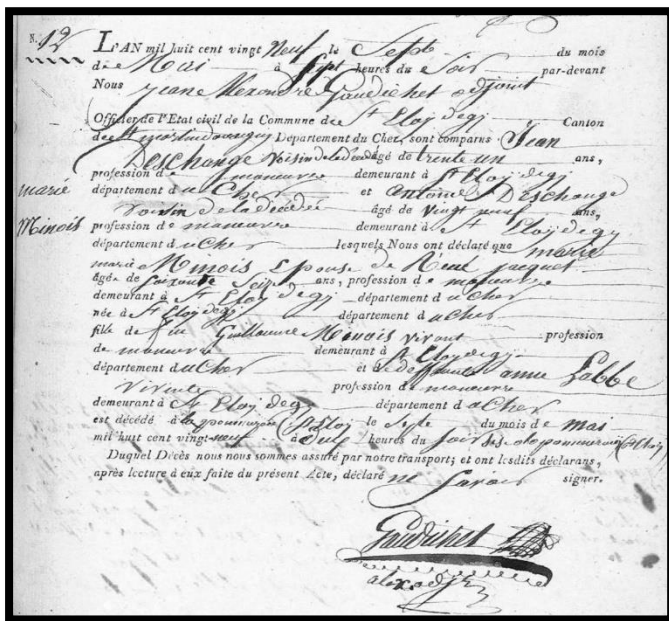 N. 12
L'AN mil huit cent vingt Neuf le Sept du mois
de Mai à Sept heures du Soir par-devant
Nous jean Alexandre Gaudichet adjoint
Officier de l'Etat civil de la Commune de St Eloy degy Canton
de St martin dauxigny Département du Cher, sont comparus Jean
Deschange Voisin de la décédé âgé de trente un ans,
profession de manœuvre demeurant à St Eloy degy
département du Cher et Antoine Deschange
voisin de la décédée âgé de vingt neuf ans,
marie
Minois
profession de manœuvre demeurant à St Eloy degy
département du Cher lesquels Nous ont déclaré que marie
marie Minois Epouse de René jacquet
âgée de Soixante Seize ans, profession de manœuvre
demeurant à St Eloy degy département du Cher
née à St Eloy degy département du Cher
fille de feu Guillaume Minois vivant profession
de manœuvre demeurant à St Eloy degy
département du Cher et de deffunte anne Labbe
vivente profession de manœuvre
demeurant à St Eloy degy département du Cher
est décédé à St Eloy le Sept du mois de mai
mil huit cent vingt-neuf à heures du Soir
Duquel Décès nous nous sommes assuré par notre transport; et ont lesdits déclarans,
après lecture à eux faite du présent Acte, déclaré ne Savoir signer.
Gaudichet
alex adj